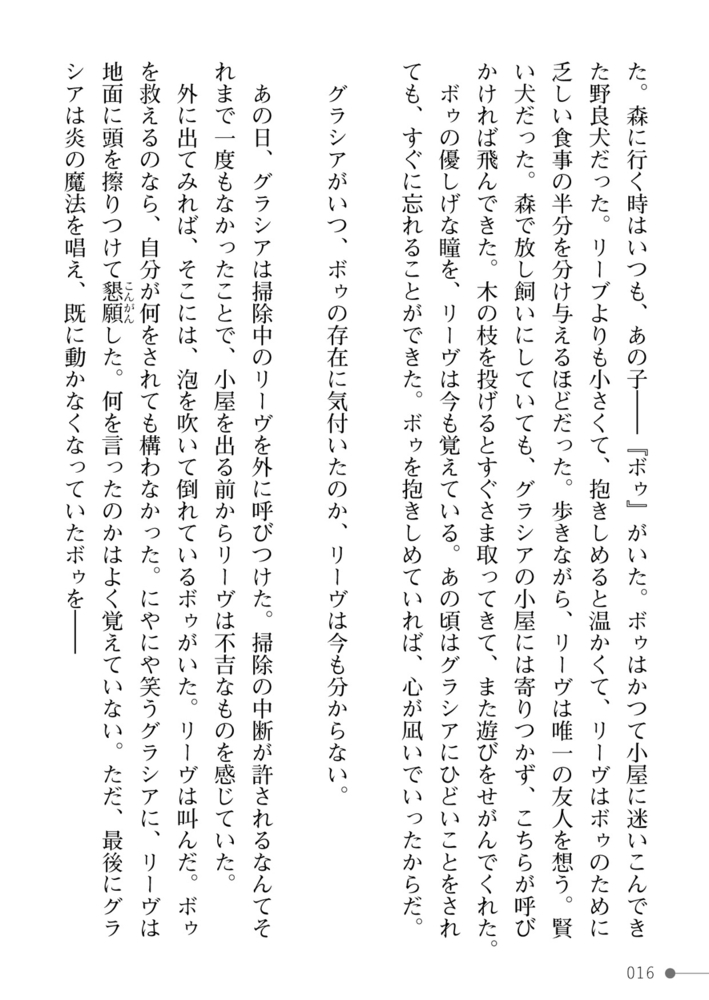 た。森に行く時はいつも、あの子――『ボゥ』がいた。ボゥはかつて小屋に迷いこんでき
た野良犬だった。リーブよりも小さくて、抱きしめると温かくて、リーヴはボゥのために
乏しい食事の半分を分け与えるほどだった。歩きながら、リーヴは唯一の友人を想う。賢
い犬だった。森で放し飼いにしていても、グラシアの小屋には寄りつかず、こちらが呼び
かければ飛んできた。木の枝を投げるとすぐさま取ってきて、また遊びをせがんでくれた。
ボゥの優しげな瞳を、リーヴは今も覚えている。あの頃はグラシアにひどいことをされ
ても、すぐに忘れることができた。ボゥを抱きしめていれば、心が凪いでいったからだ。
グラシアがいつ、ボゥの存在に気付いたのか、リーヴは今も分からない。
あの日、グラシアは掃除中のリーヴを外に呼びつけた。掃除の中断が許されるなんてそ
れまで一度もなかったことで、小屋を出る前からリーヴは不吉なものを感じていた。
外に出てみれば、そこには、泡を吹いて倒れているボゥがいた。リーヴは叫んだ。ボゥ
を救えるのなら、自分が何をされても構わなかった。にやにや笑うグラシアに、リーヴは
地面に頭を擦りつけて懇願こんがんした。何を言ったのかはよく覚えていない。ただ、最後にグラ
シアは炎の魔法を唱え、既に動かなくなっていたボゥを――
016